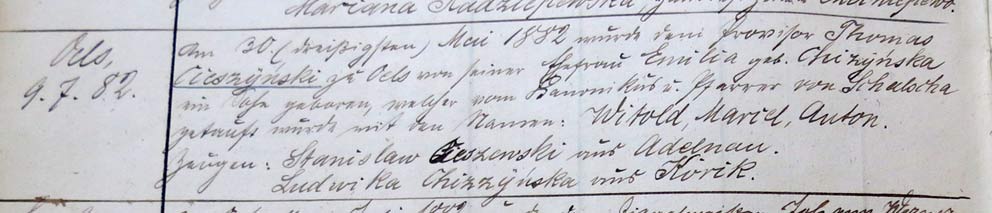 Mariana Radziejewska,
Oels,
9. 7. 82.
Am 30. (dreißigsten) Mai 1882 wurde dem Provisor Thomas
Cieszyński zu Oels von seiner Ehefrau Emilia geb. Chizyńska
ein Sohn geboren, welcher vom Kanonikus u. Pfarrer von Schalscha
getauft wurde mit den Namen: Witold, Marcel, Anton.
Zeugen: Stanislaw Cieszewski aus Adelnau.
Ludwika Chizzyńska aus Kórik.